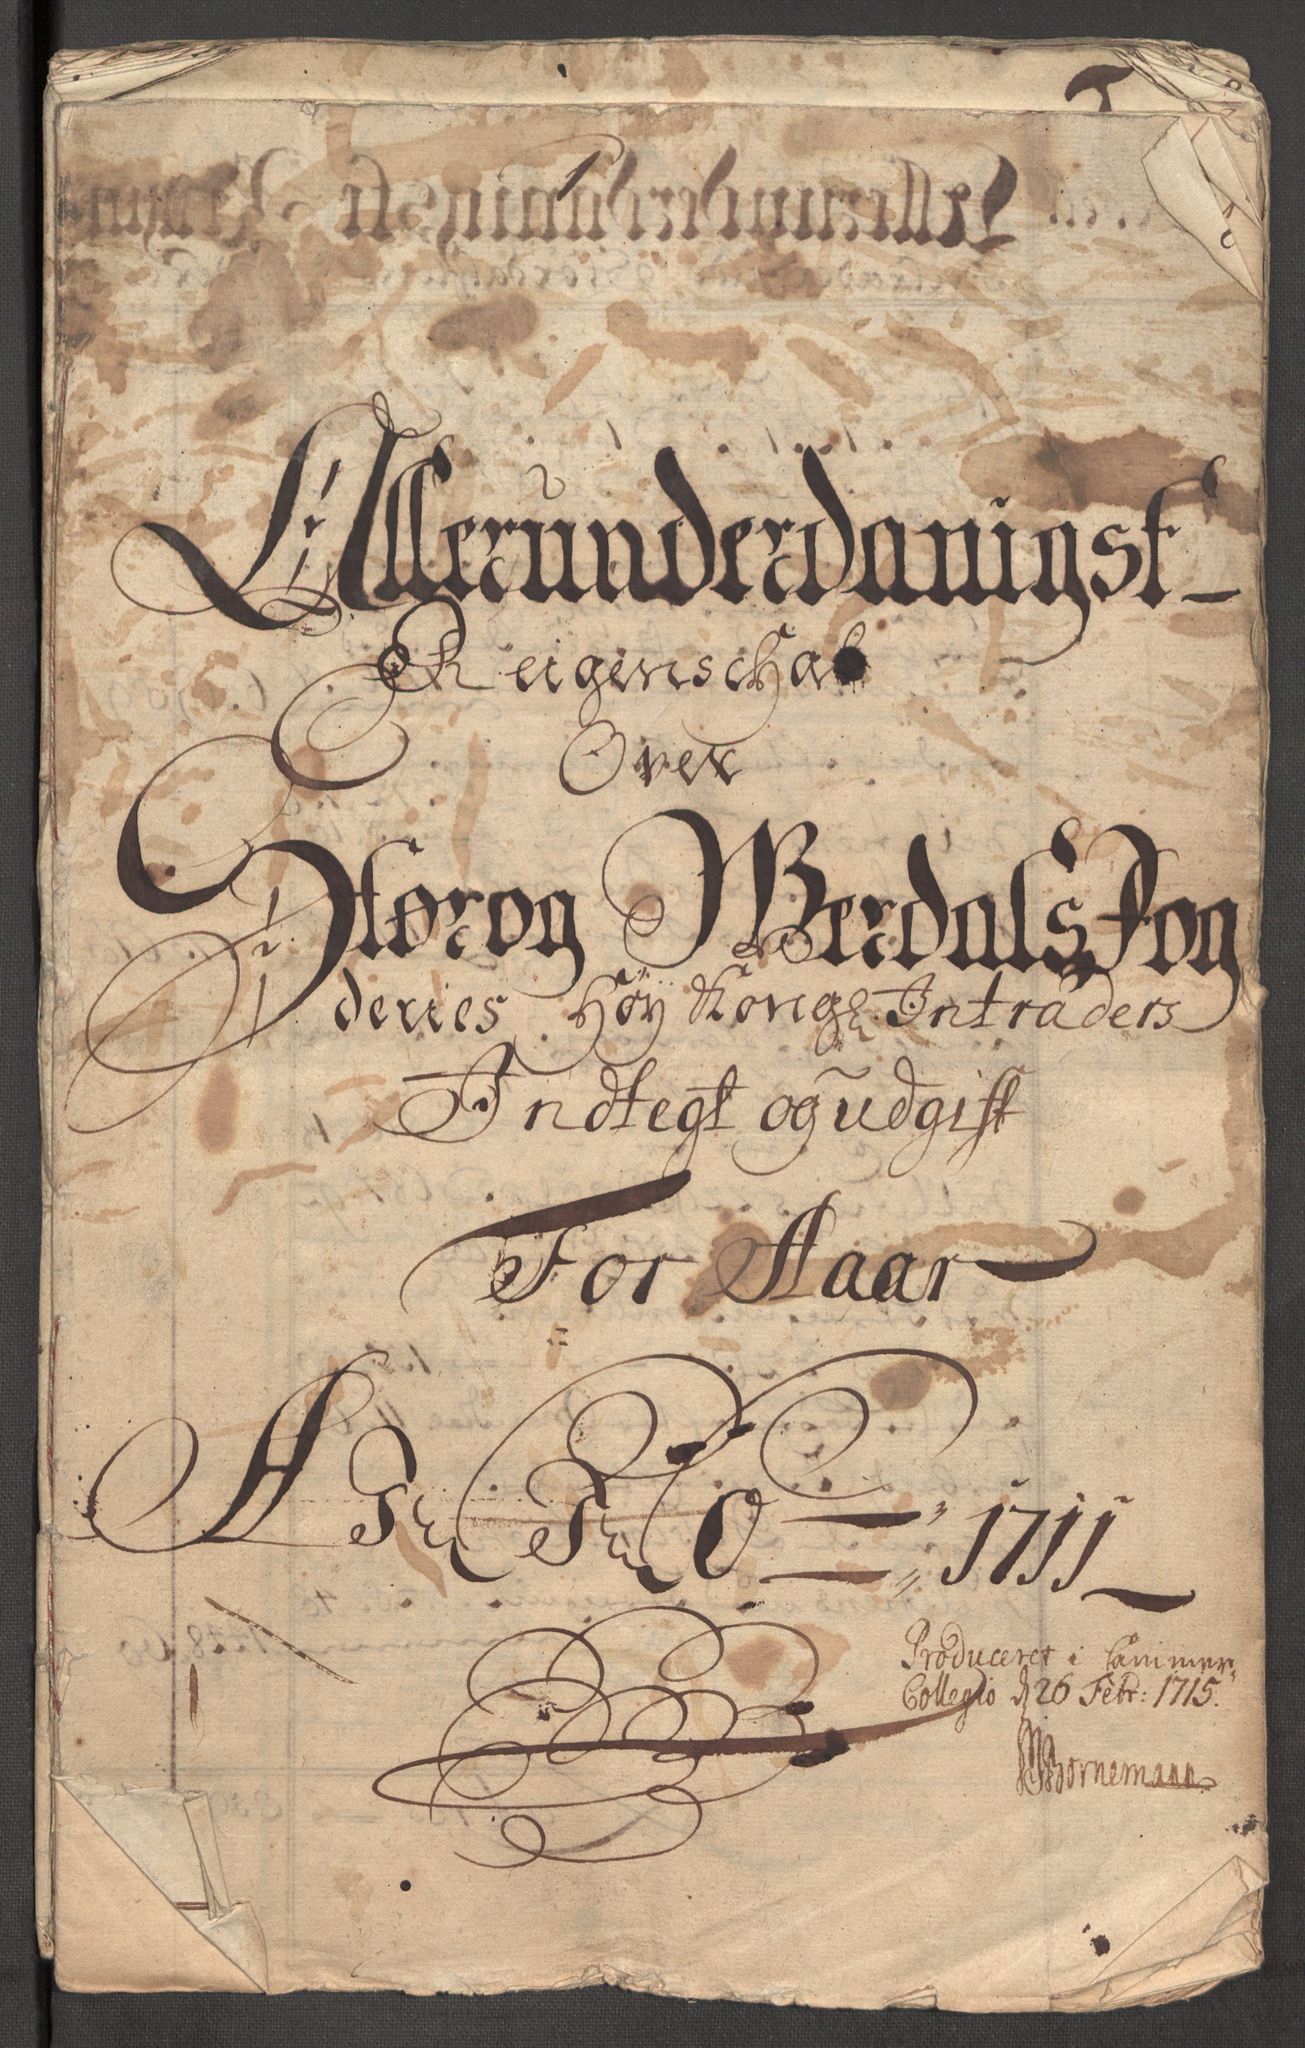 Allerunderdanigst
Reigenschab
Over
Stør og Werdals Fog
deries Høy Kongl: Intraders
Indtegt og udgift
For Aaar
A N N O 1711
Produceret i Cammer
Collegio d 26 Febr: 1715.
Bornemann